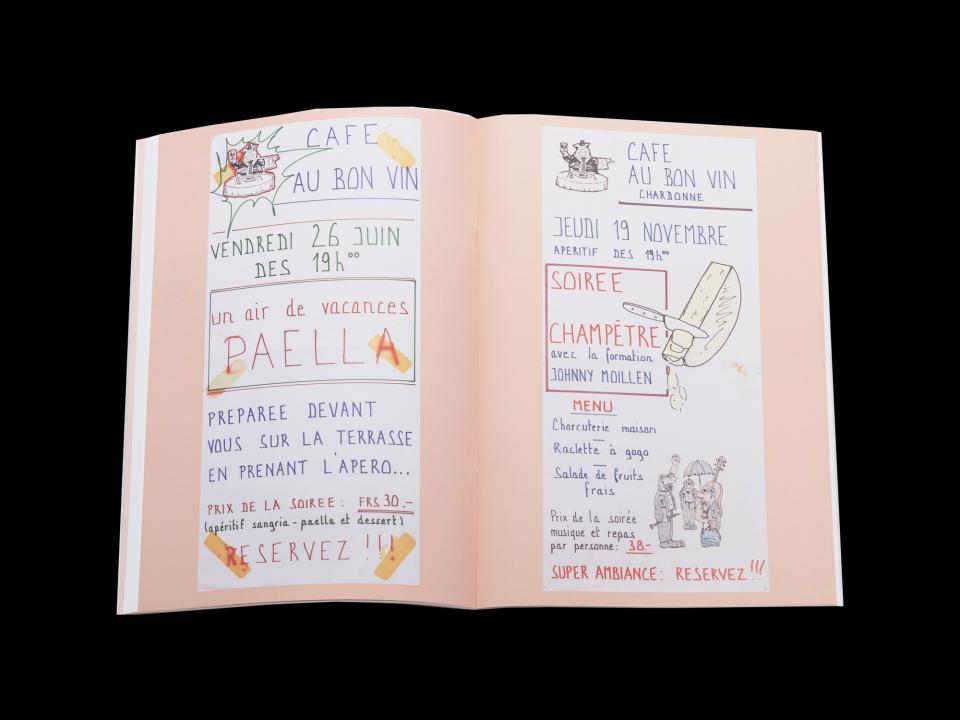 CAFE
AU BON VIN
VENDREDI 26 JUIN
DES 19h°°
un air de vacances
PAELLA
PREPAREE DEVANT
VOUS SUR LA TERRASSE
EN PRENANT L'APERO...
PRIX DE LA SOIREE: FRS 30.-
(apéritif sangria - paella et dessert)
RESERVEZ !!!
CAFE
AU BON VIN
CHARDONNE
JEUDI 19 NOVEMBRE
APERITIF DES 19h°°
SOIREE
CHAMPÊTRE
avec la formation
JOHNNY MOILLEN
MENU
Charcuterie maison
Raclette à gogo
Salade de fruits
frais
Prix de la soirée
musique et repas
par personne: 38.-
SUPER AMBIANCE: RESERVEZ !!!